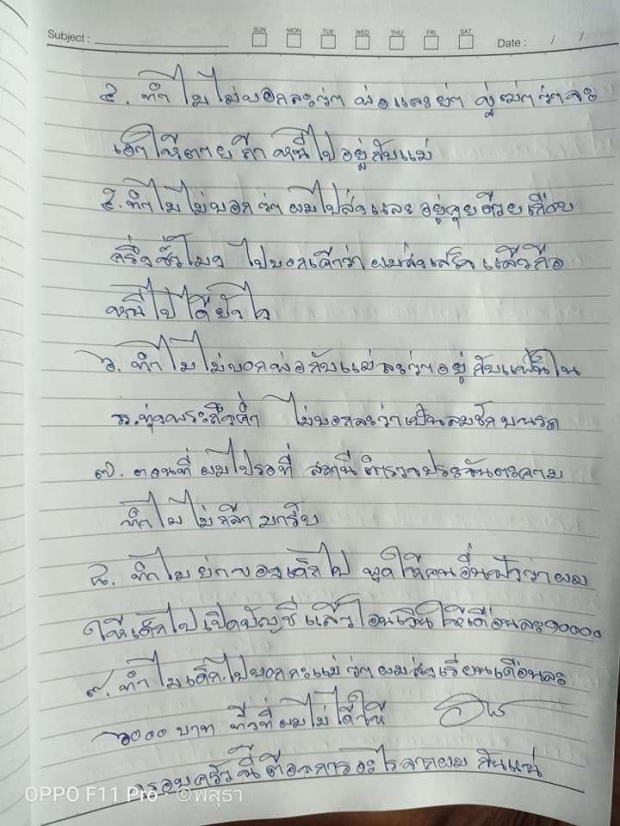 Subject : SUN MON TUE WED THU FRI SAT Date : / /
๔. ทำไมไม่บอกละว่า พ่อและย่า ขู่ว่าจะ
เอาให้ตายถ้าหนีไปอยู่กับแม่
๕. ทำไมไม่บอกว่าผมไปส่งและอยู่คุยด้วยเกือบ
ครึ่งชั่วโมง ไปบอกเค้าว่าผมส่งเสร็จแล้วก็
หนีไปได้ยังไง
๖. ทำไมไม่บอกพ่อกับแม่ละว่าอยู่กับแฟนใน
ทุ่งพระ ไม่บอกละว่าเป็นลมชักบนรถ
๗. ตอนที่ผมไปรอที่ สถานีตำรวจประจันตคาม
ทำไมไม่กล้ามารับ
๘. ทำไมย่าของเด็กไป พูดให้คนอื่นฟังว่าผม
ให้เด็กไปเปิดบัญชีแล้วโอนเงินให้เดือนละ ๑๐๐๐๐
๙. ทำไมเด็กไปบอกกะแม่ว่าผมส่งเรียนเดือนละ
๖๐๐๐ บาท ทั้งที่ผมไม่ได้ให้
ครอบครัวนี้ต้องการอะไรจากผม กันแน่
OPPO F11 Pro · ©พสุธา